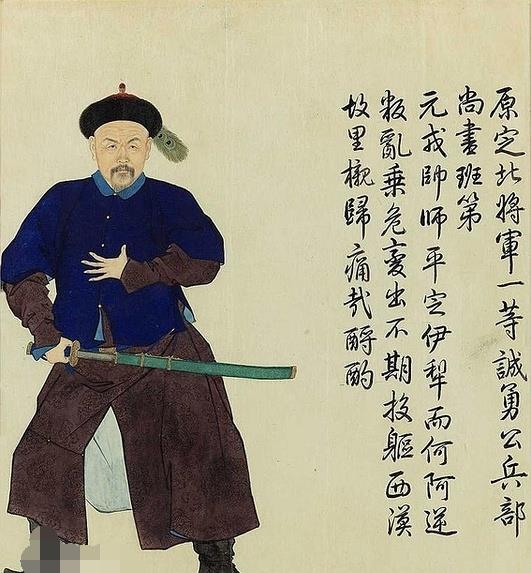 原定北將軍一等誠勇公兵部
尚書班第
元戎帥師平定伊犁而何阿逆
叛亂乗危變出不期投軀西漠
故里櫬歸痛㢤酹酌